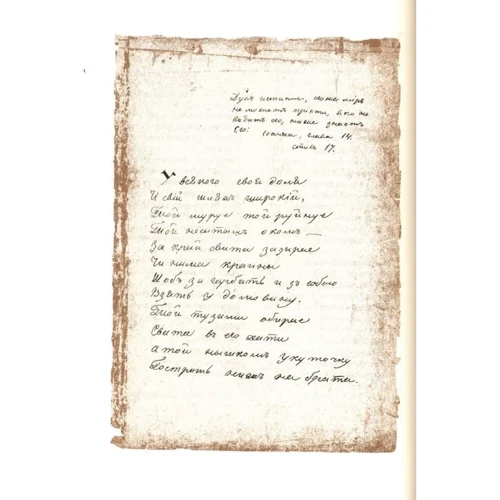 Духъ истины, его же миръ
не можетъ пріяти, яко не
видитъ его, ниже знаетъ
его: Іоанна, глава 14.
стихъ 17.
У всякого своя доля
И свій шляхъ широкій,
Той муруе той руйнуе
Той неситымъ окомъ —
За край свита зазирае
Чи нема краины
Щобъ загарбать и зъ собою
Взять у домовину.
Той тузами обирае
Свата въ его хати
А той нышкомъ у куточку
Гострить ножъ на брата.